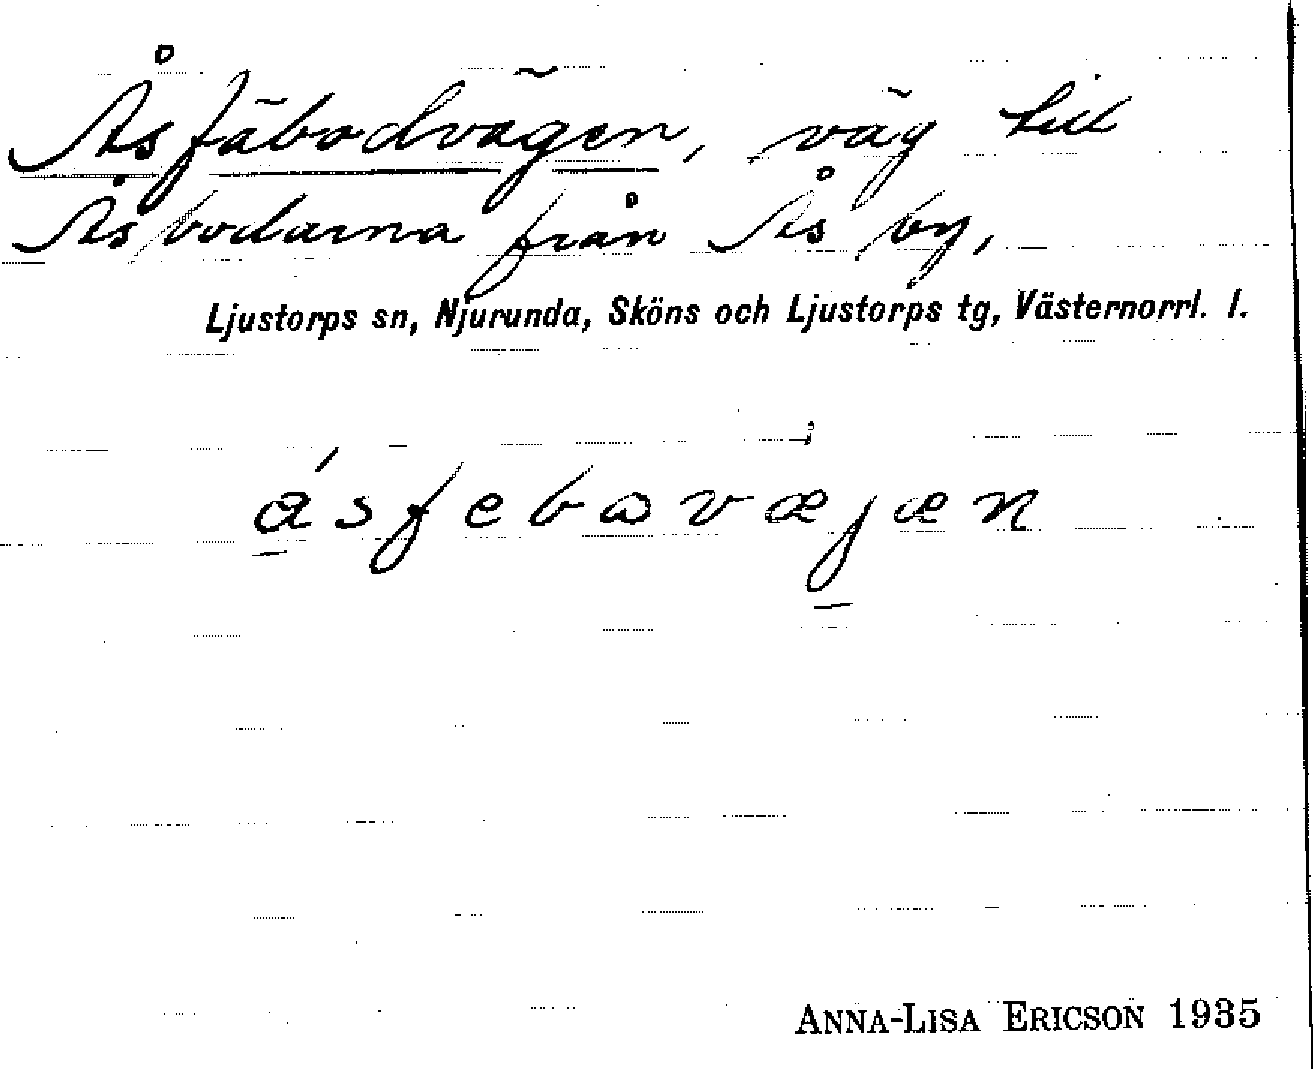 Åsfäbodvägen, väg till
Åsbodarna från Ås by,
Ljustorps sn, Njurunda, Sköns och Ljustorps tg, Västernorrl. l.
ásfebωvæjæn
ANNA-LISA ERICSON 1935